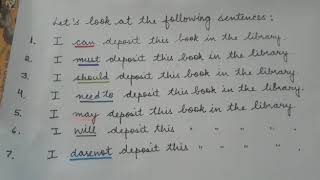 Let's look at the following sentences:
1. I can deposit this book in the library.
2. I must deposit this book in the library.
3. I should deposit this book in the library.
4. I need to deposit this book in the library.
5. I may deposit this book in the library.
6. I will deposit this " " " "
7. I darenot deposit this " " " " .